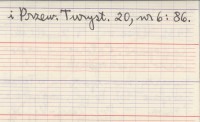 i Przew. Turyst. 20, nr 6: 86.